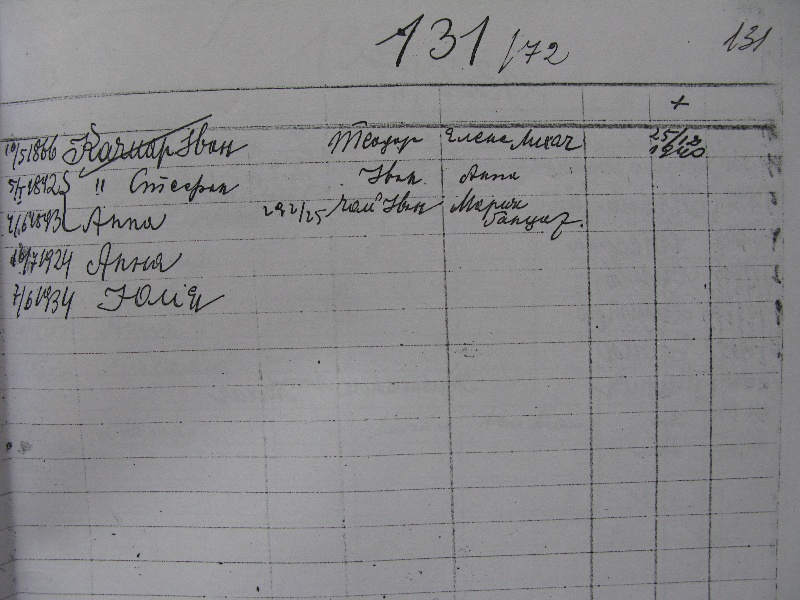 131/72 131
+
10/5 1866 Качмар Іван Теодор Елена Михач 25/12 1940
5/I 1892 " Стефан Іван Анна
4/6 1893 Анна 292/25 Чай Іван Мария
Ганцар.
/7 1924 Анна
7/6 1934 Юлія